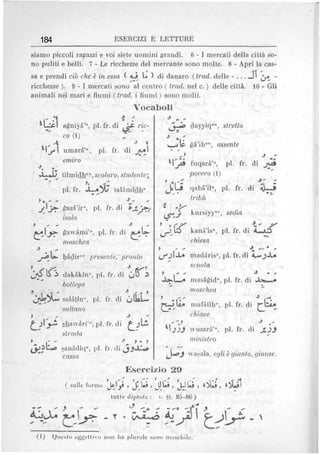 184 ESERCIZI E LETTURE
siamo piccoli rapazzi e voi siete uomini grandi. 6 - I mercati della città so-
no puliti e belli. 7 - Le ricchezze del mercante sono molte. 8 - Apri la cas-
sa e prendi ciò che è in essa ( مَا فِيهَا ) di danaro ( trad. delle - . . . مِنَ الْـ
ricchezze ). 9 - I mercati sono al centro ( trad. nel c. ) delle città. 10 - Gli
animali nei mari e fiumi ( trad. i fiumi ) sono molti.
Vocaboli
أَغْنِيَاءُ aġniyāʾu, pl. fr. di غَنِيٌّ ric-
co (1)
أُمَرَاءُ umarāʾu, pl. fr. di أَمِيرٌ
emiro
تِلْمِيذٌ tilmīḏun, scolaro, studente;
pl. fr. تَلَامِيذُ talāmīḏu
جَزَائِرُ ǧazāʾiru, pl. fr. di جَزِيرَةٌ
isola
جَوَامِعُ ǧawāmiʿu, pl. fr. di جَامِعٌ
moschea
حَاضِرٌ ḥāḍirun presente, pronto
دَكَاكِينُ dakākīnu, pl. fr. di دُكَّانٌ
bottega
سَلَاطِينُ salāṭīnu, pl. fr. di سُلْطَانٌ
sultano
شَوَارِعُ šawāriʿu, pl. fr. di شَارِعٌ
strada
صَنَادِيقُ ṣanādīqu, pl. fr. di صُنْدُوقٌ
cassa
ضَيِّقٌ ḍayyiqun, stretto
غَائِبٌ ġāʾibun, assente
فُقَرَاءُ fuqarāʾu, pl. fr. di فَقِيرٌ
povero (1)
قَبَائِلُ qabāʾilu, pl. fr. di قَبِيلَةٌ
tribù
كُرْسِيٌّ kursiyyun, sedia
كَنَائِسُ kanāʾisu, pl. fr. di كَنِيسَةٌ
chiesa
مَدَارِسُ madārisu, pl. fr. di مَدْرَسَةٌ
scuola
مَسَاجِدُ masāǧidu, pl. fr. di مَسْجِدٌ
moschea
مَفَاتِيحُ mafātīḥu, pl. fr. di مِفْتَاحٌ
chiave
وُزَرَاءُ wuzarāʾu, pl. fr. di وَزِيرٌ
ministro
وَصَلَ waṣala, egli è giunto, giunse.
Esercizio 29
( sulle forme
tutte diptote : v. §§. 85-86 )
(1) Questo aggettivo non ha plurale sano maschile.